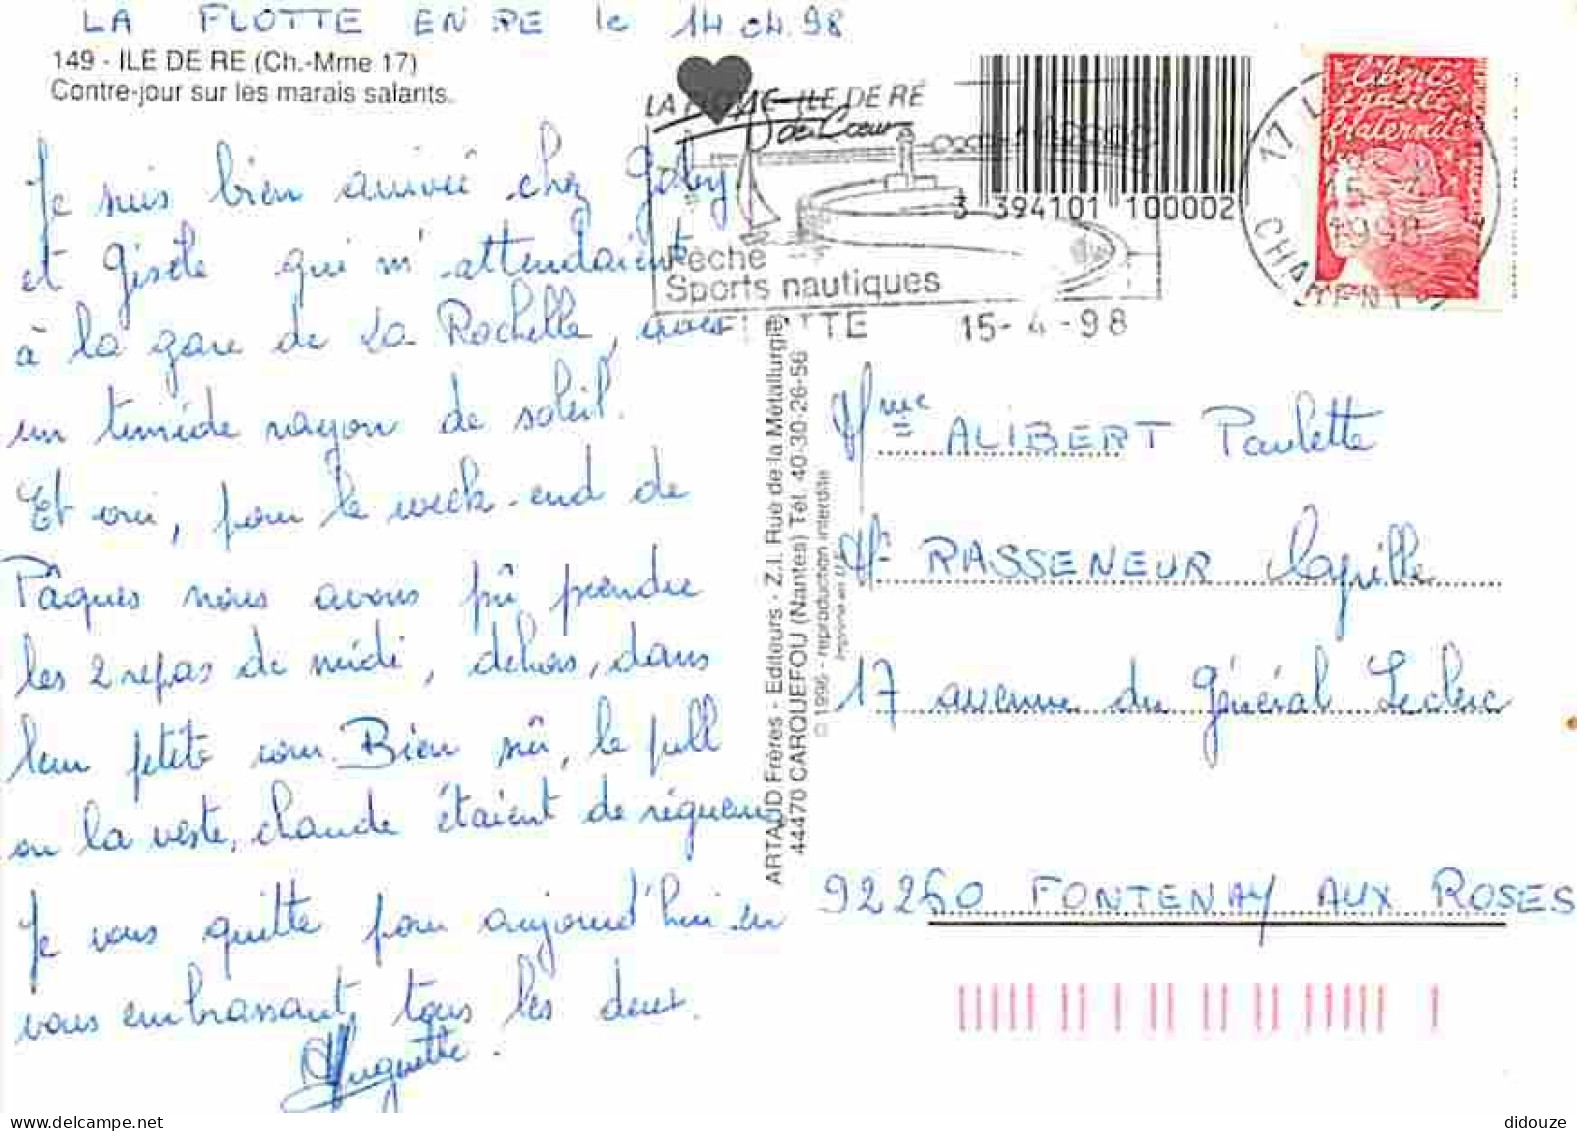 LA FLOTTE EN RE le 14.04.98
149 - ILE DE RE (Ch.-Mme 17)
Contre-jour sur les marais salants.
Je suis bien arrivée chez Gaby
et Gisèle qui m'attendaient
à la gare de La Rochelle, avec
un timide rayon de soleil.
Et oui, pour le week-end de
Pâques nous avons pû prendre
les 2 repas de midi, dehors, dans
leur petite cour. Bien sûr, le pull
ou la veste, chaude étaient de rigueur
Je vous quitte pour aujourd'hui en
vous embrassant tous les deux.
Huguette.
LA FLOTTE ILE DE RÉ
de Cœur
Pêche
Sports nautiques
FLOTTE 15-4-98
3 394101 100002
liberté
égalité
fraternité
17 L
15
1998
CHARENTE
ARTAUD Frères - Editeurs - Z.I. Rue de la Métallurgie
44470 CARQUEFOU (Nantes) Tél. 40-30-26-56
© 1996 - reproduction interdite
Imprimé en U.E.
Mme ALIBERT Paulette
Mr RASSENEUR
17 avenue du Général Leclerc
92260 FONTENAY AUX ROSES
didouze